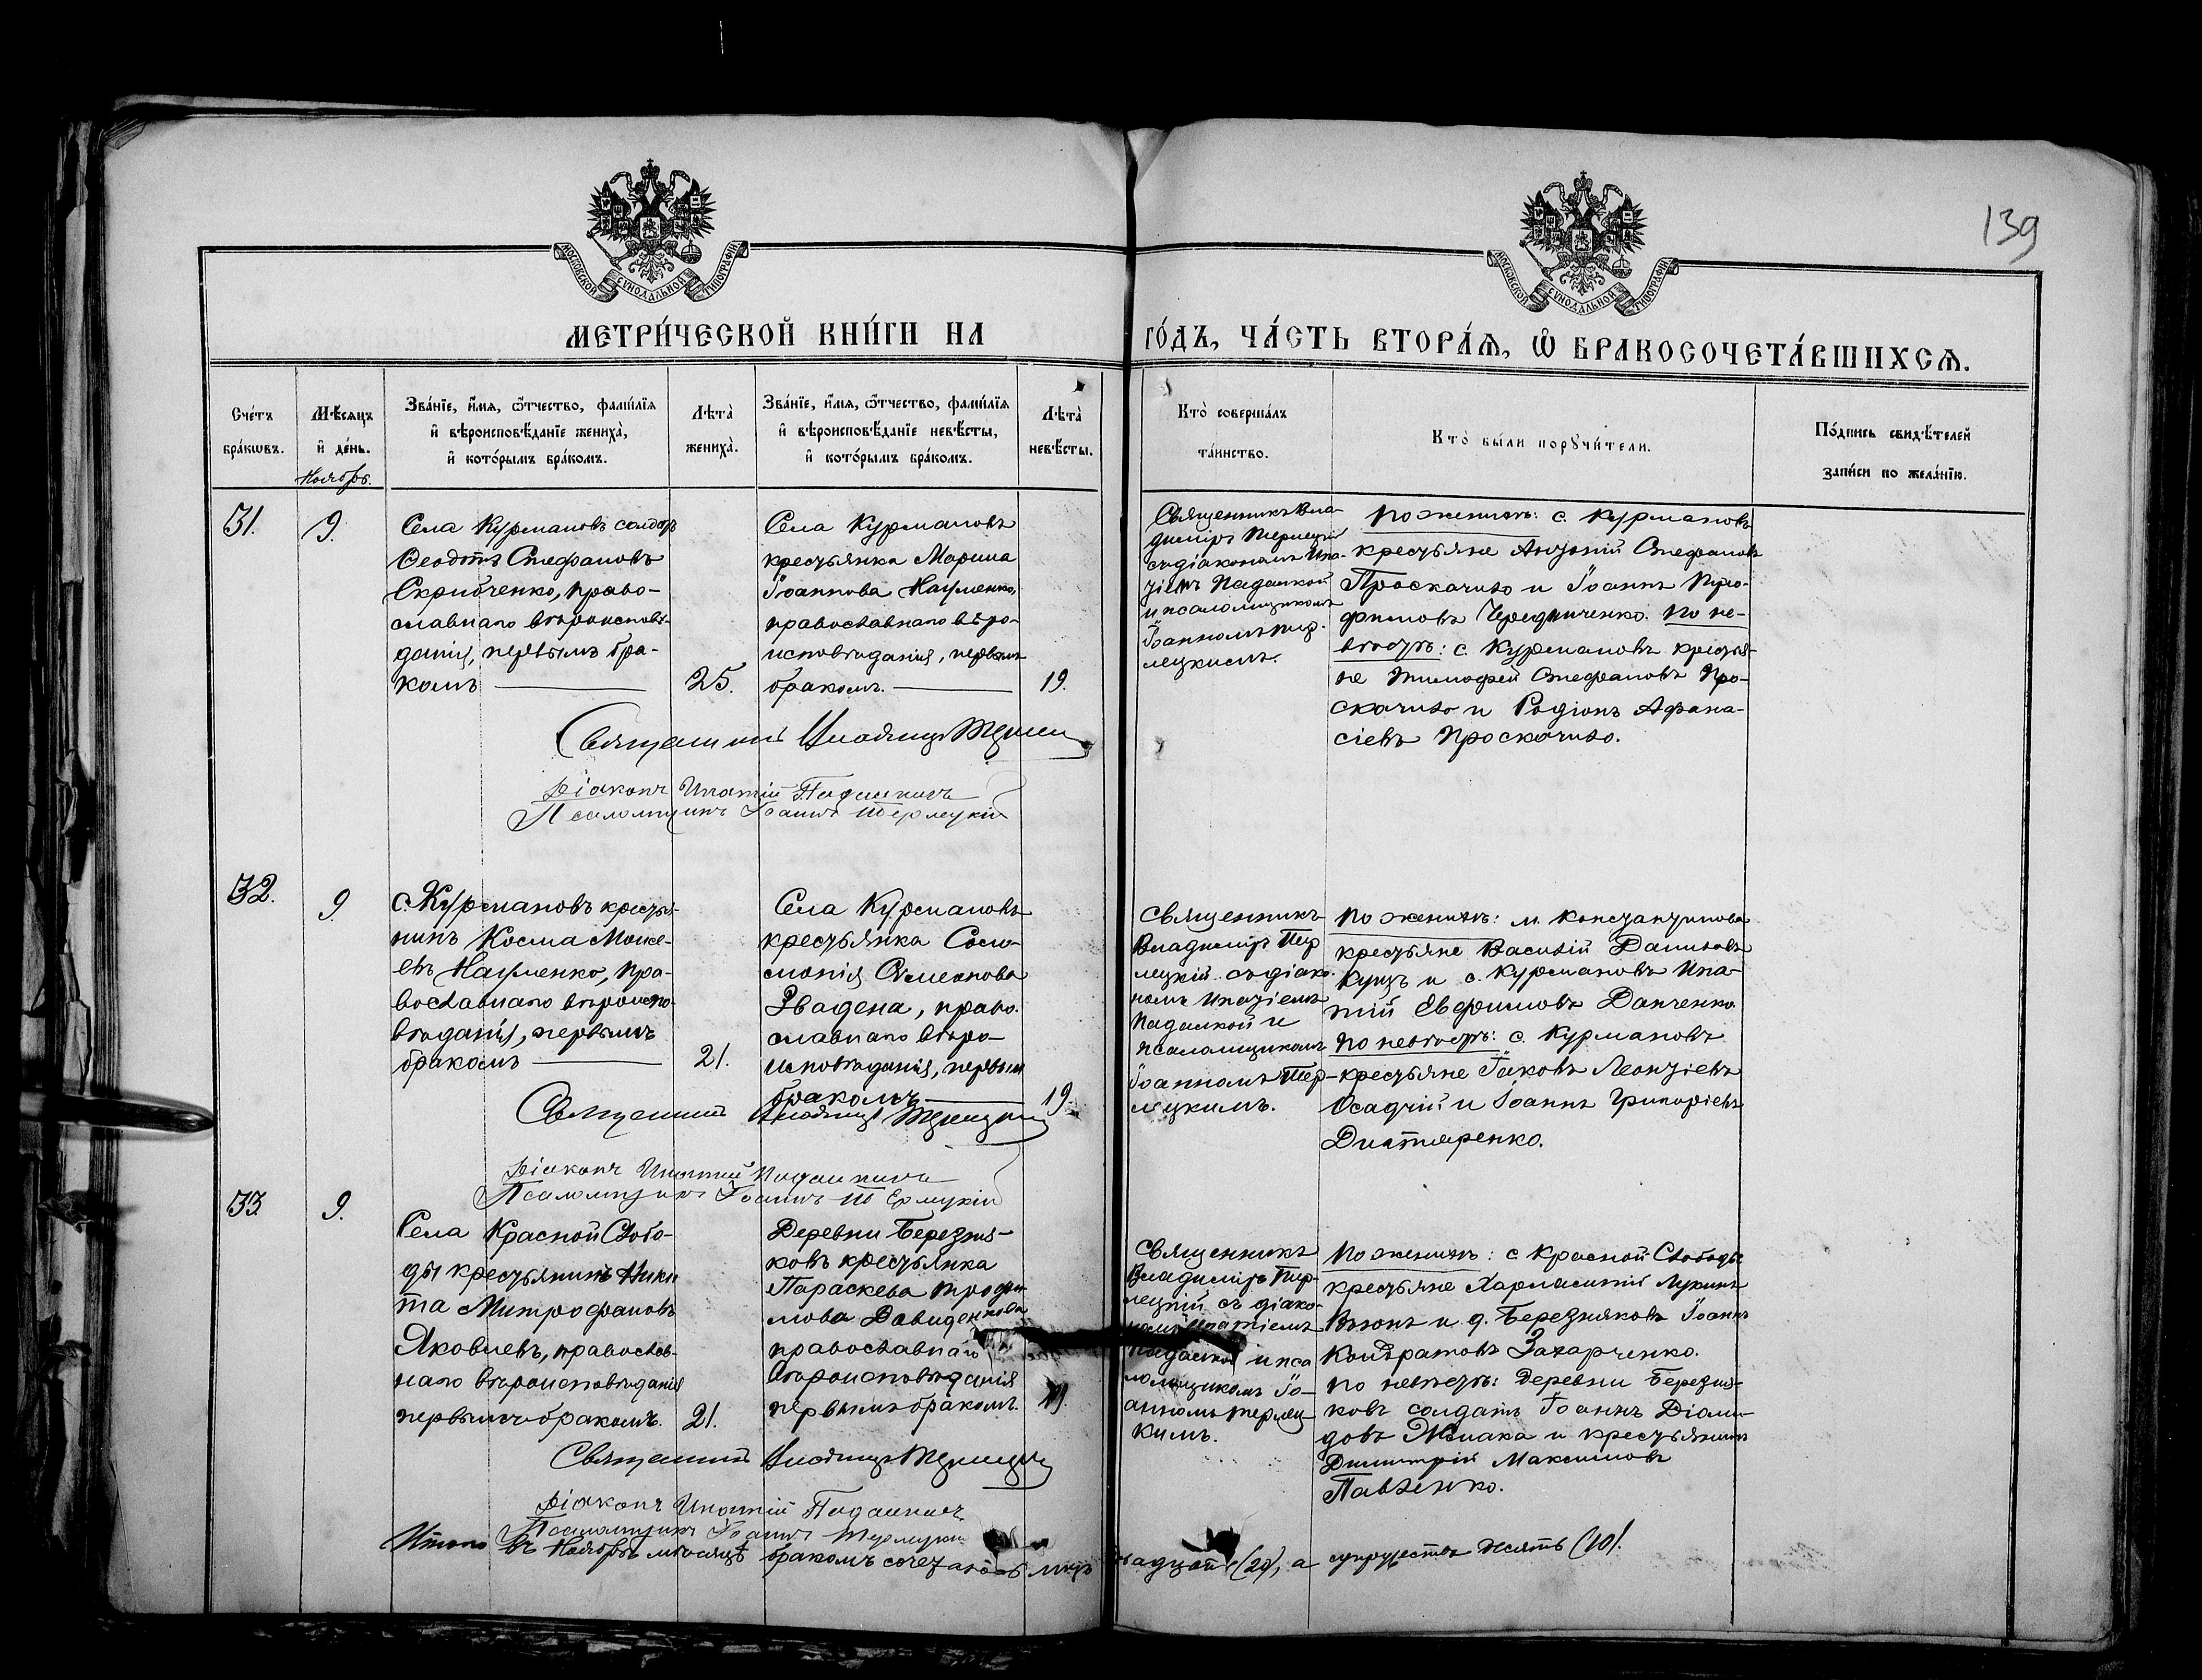 139
МОСКОВСКОЙ СУНОДАЛЬНОЙ ТИПОГРАФІИ
МОСКОВСКОЙ СУНОДАЛЬНОЙ ТИПОГРАФІИ
МЕТРИ́ЧЕСКОЙ КНИ́ГИ НА
ГО́ДЪ, ЧА́СТЬ ВТОРА́Ѧ, Ѽ БРАКОСОЧЕТА́ВШИХСѦ.
Сче́тъ
бра́кѡвъ.
Мѣ́сяцъ
и҆ де́нь.
Ноябрь.
Зва́нїе, и҆́мя, ѻ҆́тчество, фами́лїя
и҆ вѣроисповѣ́данїе жениха̀,
и҆ кото́рымъ бра́комъ.
Лѣта̀
жениха̀.
Зва́нїе, и҆́мя, ѻ҆́тчество, фами́лїя
и҆ вѣроисповѣ́данїе невѣ́сты,
и҆ кото́рымъ бра́комъ.
Лѣта̀
невѣ́сты.
Кто̀ соверша́лъ
та́инство.
Кто̀ бы́ли порꙋчи́тели.
По́дпись свидѣ́телей
за́писи по жела́нїю.
31.
9.
Села Курмановъ солдатъ
Ѳеодотъ Стефановъ
Скрибченко, право-
славнаго вѣроисповѣ-
данія, первымъ бра-
комъ
25.
Села Курмановъ
крестьянка Марина
Іоаннова Науменко,
православнаго вѣро-
исповѣданія, первымъ
бракомъ.
19.
Священникъ Вла-
диміръ Терлецкій
съ діакономъ Ипа-
тіемъ Падалкой
и псаломщикомъ
Іоанномъ Тер-
лецкимъ.
По женихѣ: с. Курмановъ
крестьяне Антоній Стефановъ
Проскачило и Іоаннъ Тро-
фимовъ Чередниченко. По не-
вѣстѣ: с. Курмановъ крестья-
не Тимофей Стефановъ Про-
скачило и Родіонъ Афана-
сіевъ Проскачило.
Священникъ Владиміръ
Діаконъ Ипатій
Псаломщикъ Іоаннъ Терлецкій
32.
9.
с. Курмановъ крестья-
нинъ Косма Моисе-
евъ Науменко, пра-
вославнаго вѣроиспо-
вѣданія, первымъ
бракомъ
21.
Села Курмановъ
крестьянка Соло-
монія Симеонова
Звадена, право-
славнаго вѣро-
исповѣданія, первымъ
бракомъ
19.
Священникъ
Владиміръ Тер
лецкій съ діако-
номъ Ипатіемъ
Падалкой и
псаломщикомъ
Іоанномъ Тер-
лецкимъ.
По женихѣ: м. Константинова
крестьяне Василій Даниловъ
Куцъ и с. Курмановъ Ипа-
тій Евфимовъ Данченко.
По невѣстѣ: с. Курмановъ
крестьяне Іаковъ Леонтіевъ
Осадчій и Іоаннъ Григоріевъ
Дигтяренко.
Священникъ Владиміръ
Діаконъ Ипатій
Псаломщикъ Іоаннъ Терлецкій
33
9.
Села Красной Слобо-
ды крестьянинъ Ники
та Митрофановъ
Яковлевъ, православ-
наго вѣроисповѣданія
первымъ бракомъ.
21.
Деревни Березня-
ковъ крестьянка
Параскева Трофи
мова Давиденкова
православнаго
вѣроисповѣданія
первымъ бракомъ.
19.
Священникъ
Владиміръ Тер-
лецкій съ діако-
номъ Ипатіемъ
Падалкой и пса
ломщикомъ Іо-
анномъ Терлец-
кимъ.
По женихѣ: с. Красной Слободы
крестьяне Харлампій Лукинъ
Вьюнъ и д. Березняковъ Іоаннъ
Кондратовъ Захарченко.
По невѣстѣ: Деревни Березня-
ковъ солдатъ Іоаннъ Діоми-
довъ Жмака и крестьянинъ
Димитрій Максимовъ
Павленко.
Священникъ Владиміръ
Діаконъ Ипатій
Псаломщикъ Іоаннъ Терлецкій
Итого въ Ноябрѣ мѣсяцѣ бракомъ сочеталось лицъ двадцать (20), а супружествъ десять (10).